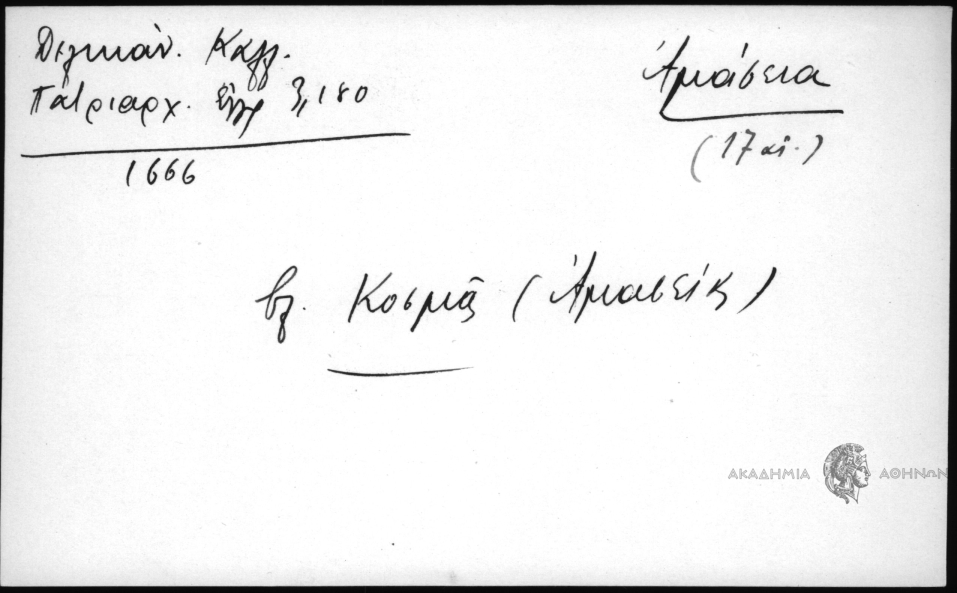 Δελικάν. Καλλ.
Πατριαρχ. ἔγγρ 3, 180
1666
Ἀμάσεια
(17 αἰ.)
βλ. Κοσμᾶς (Ἀμασείας)
ΑΚΑΔΗΜΙΑ ΑΘΗΝΩΝ